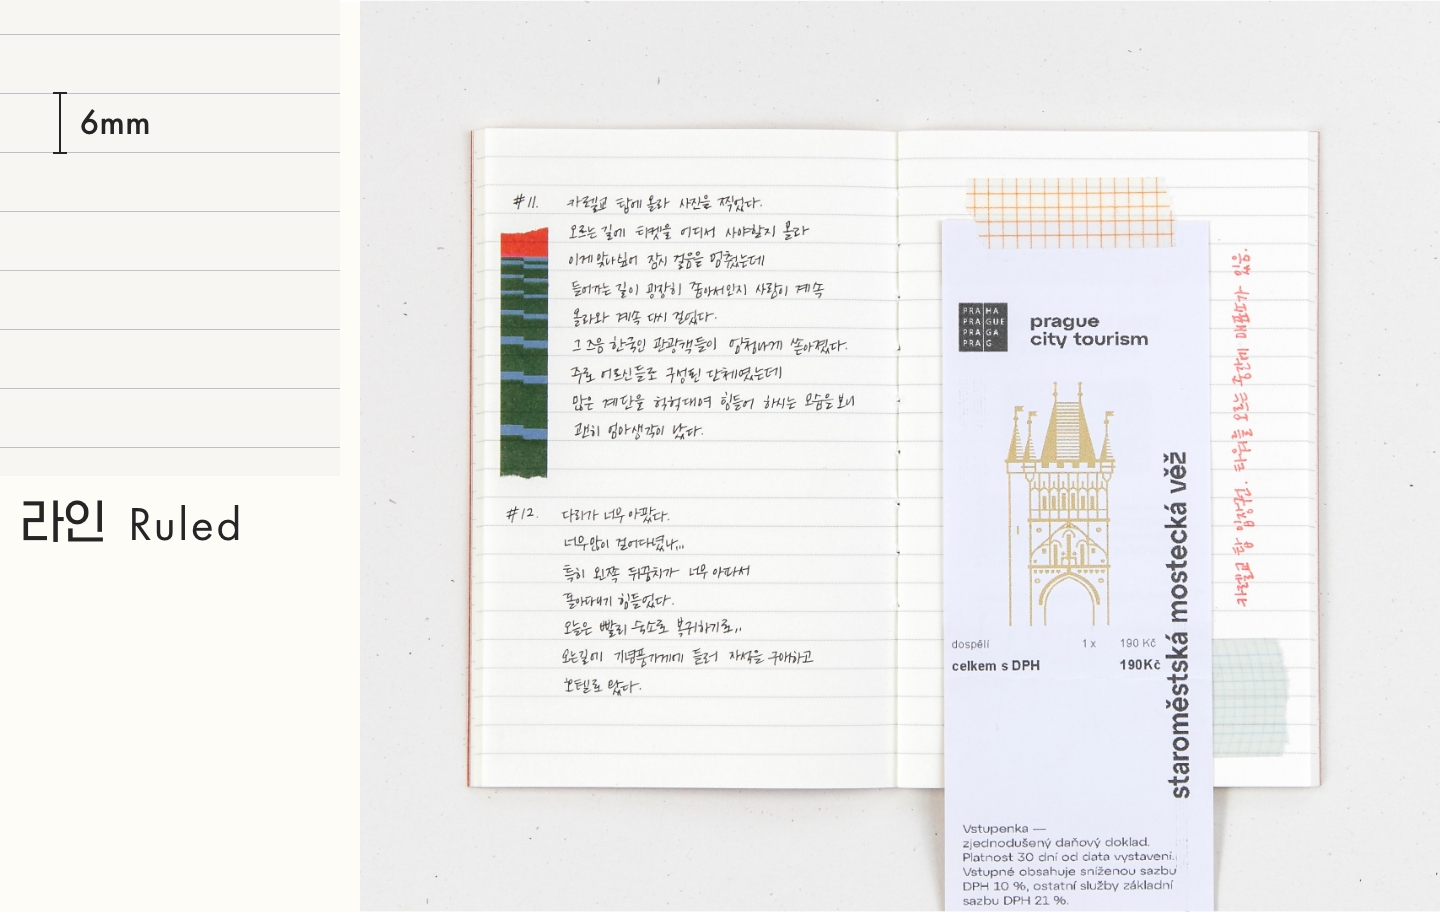 6mm
라인 Ruled
#11. 카렐교 탑에 올라 사진을 찍었다.
오르는 길에 티켓을 어디서 사야할지 몰라
이게 맞나 싶어 잠시 걸음을 멈췄는데
들어가는 길이 굉장히 좁아서인지 사람이 계속
올라와 계속 다시 걸었다.
그 즈음 한국인 관광객들이 엄청나게 쏟아졌다.
주로 어르신들로 구성된 단체였는데
많은 계단을 헉헉대며 힘들어 하시는 모습을 보니
괜히 엄마 생각이 났다.
#12. 다리가 너무 아팠다.
너무 많이 걸어다녔나...
특히 왼쪽 뒤꿈치가 너무 아파서
돌아다니기 힘들었다.
오늘은 빨리 숙소로 복귀하기로..
오는 길에 기념품가게에 들러 자석을 구매하고
호텔로 왔다.
PRA HA
PRA GUE
PRA GA
PRA G
prague
city tourism
staroměstská mostecká věž
dospělí 1 x 190 Kč
celkem s DPH 190Kč
Vstupenka —
zjednodušený daňový doklad.
Platnost 30 dní od data vystavení.
Vstupné obsahuje sníženou sazbu
DPH 10 %, ostatní služby základní
sazbu DPH 21 %.